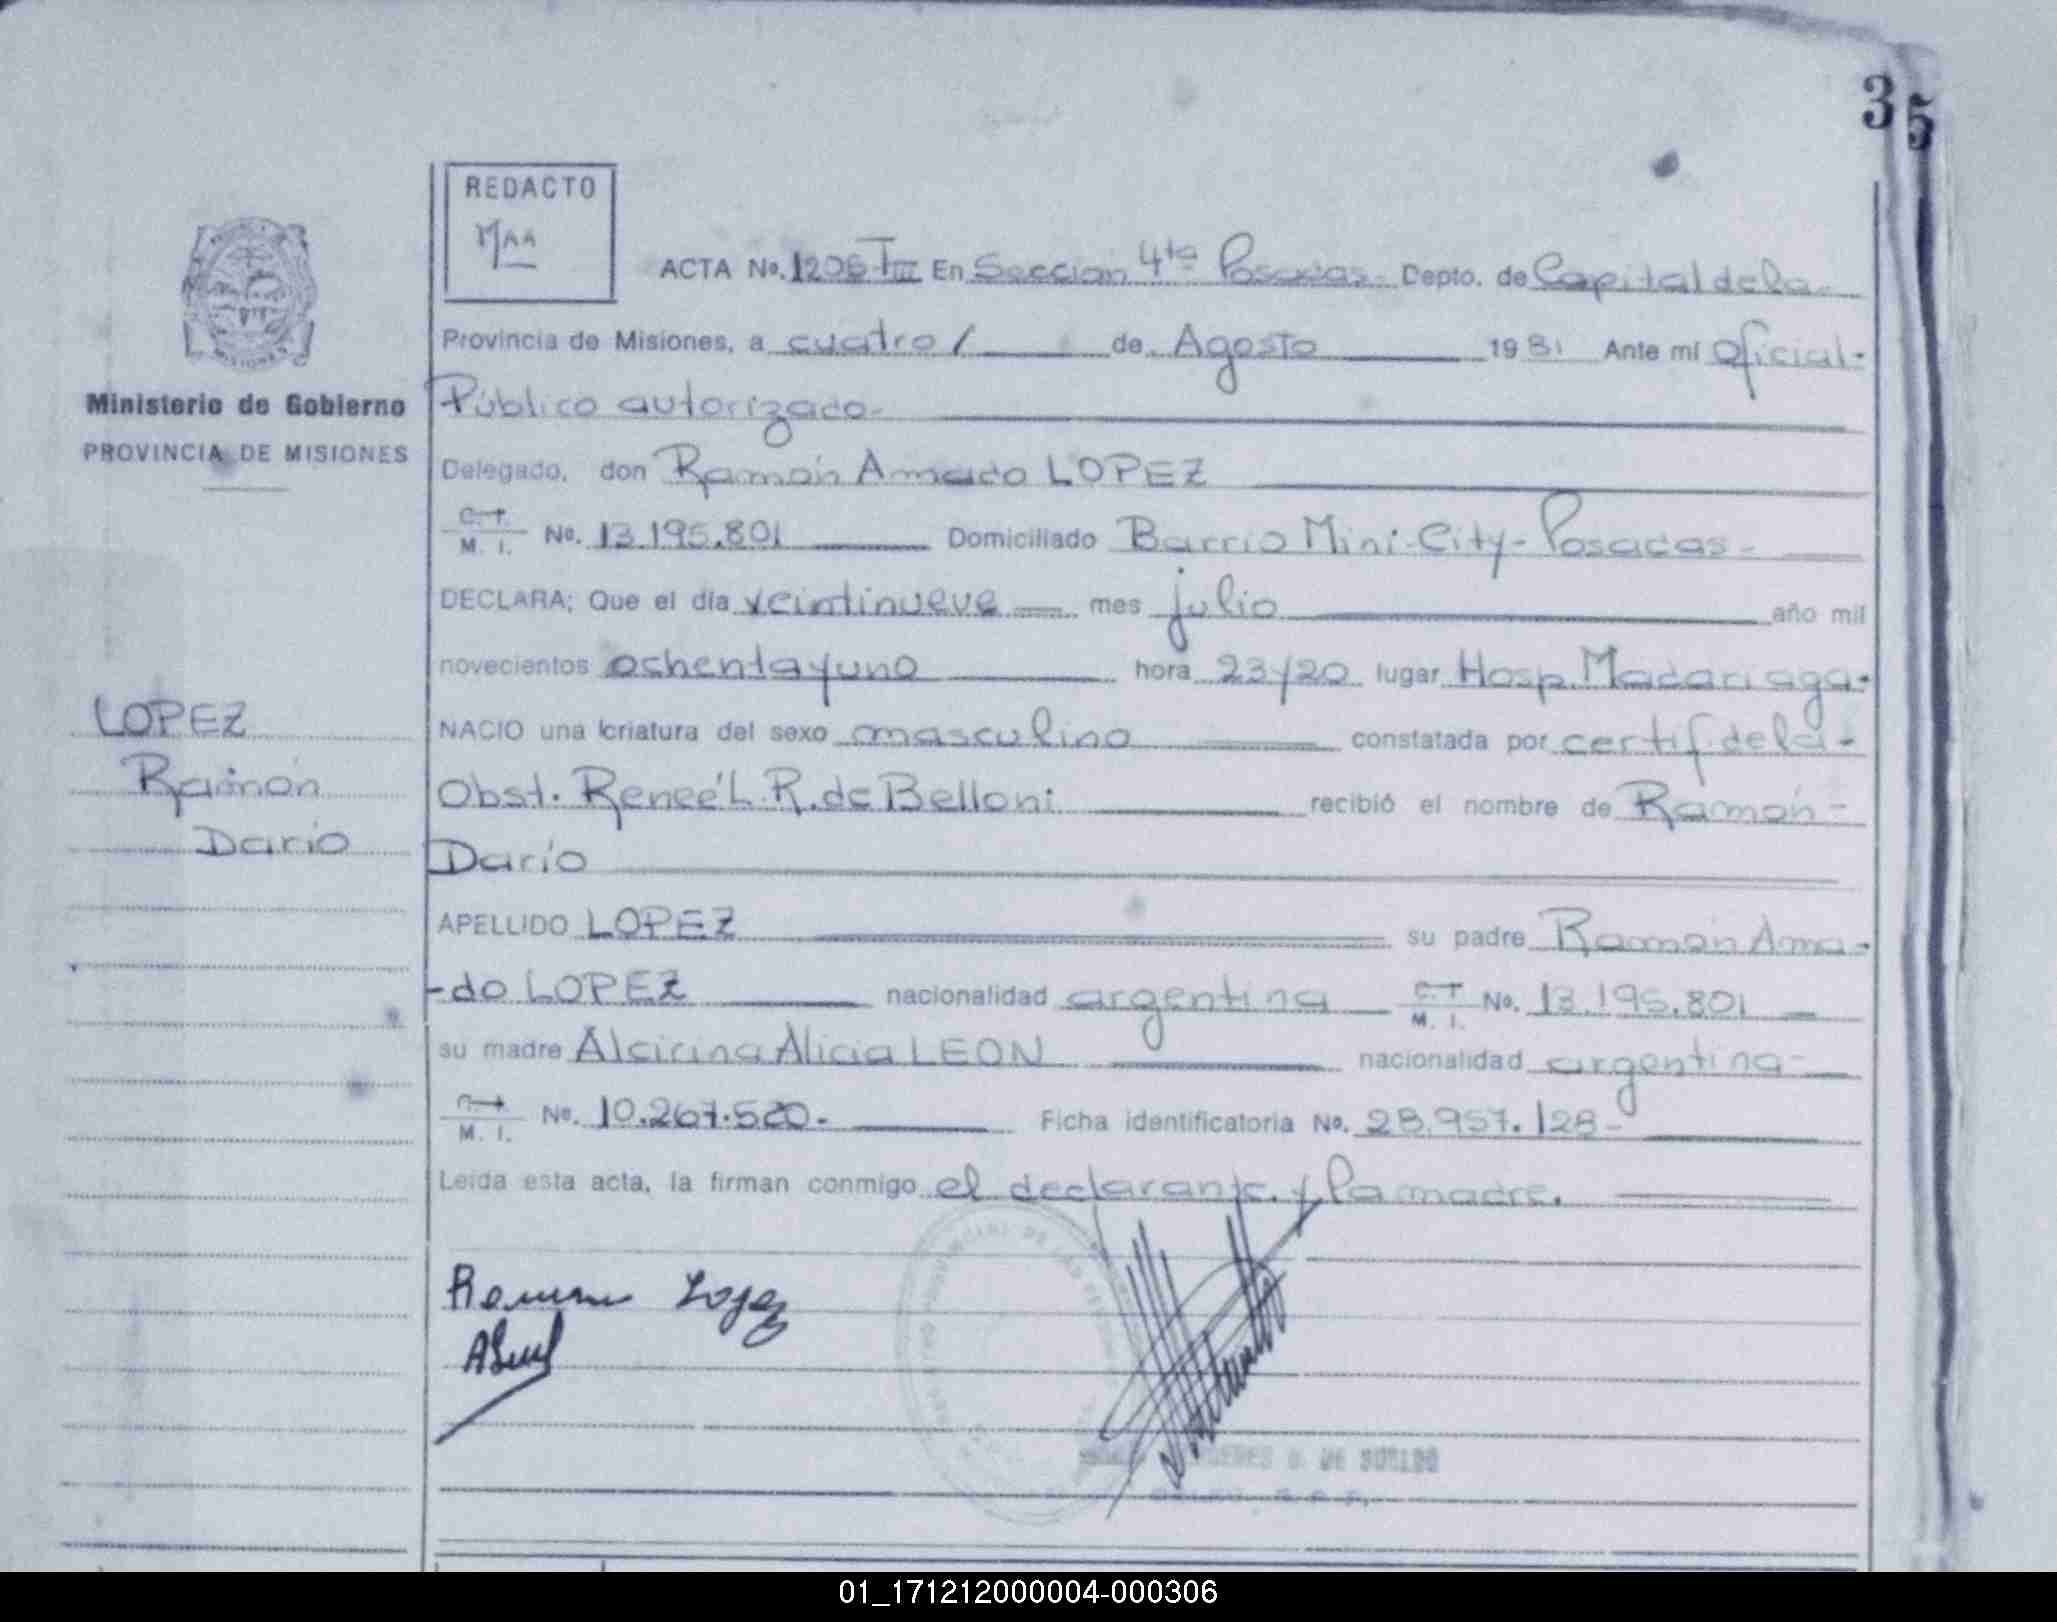 35
REDACTO
MAA
ACTA No. 1206 TIII En Sección 4ta Posadas- Depto. de Capital de la-
Provincia de Misiones, a cuatro / de Agosto 1981 Ante mi Oficial-
Ministerio de Gobierno
Público autorizado-
PROVINCIA DE MISIONES
Delegado, don Ramón Amado LOPEZ
C.I. M. I. No. 13.195.801 Domiciliado Barrio Mini-City-Posadas-
DECLARA; Que el día veintinueve mes julio año mil
novecientos ochenta y uno hora 23y20 lugar Hosp. Madariaga-
LOPEZ
NACIO una criatura del sexo masculino constatada por certif. de la-
Ramón
Obst. Reneé L. R. de Belloni recibió el nombre de Ramón-
Darío
Darío
APELLIDO LOPEZ su padre Ramón Ama-
-do LOPEZ nacionalidad argentina C.I. M. I. No. 13.195.801
su madre Alcirina Alicia LEON nacionalidad argentina-
M. I. No. 10.267.520.- Ficha identificatoria No. 28.957.128-
Leída esta acta, la firman conmigo el declarante y la madre.
Ramon Lopez
01_171212000004-000306